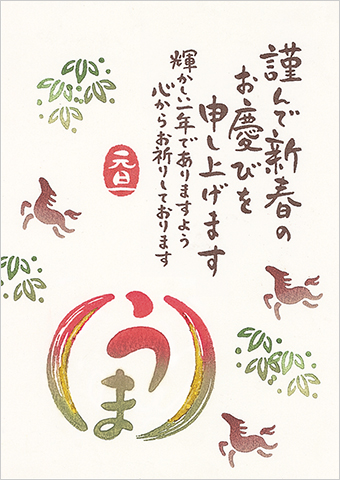 謹んで新春の
お慶びを
申し上げます
輝かしい一年でありますよう
心からお祈りしております
元旦
うま